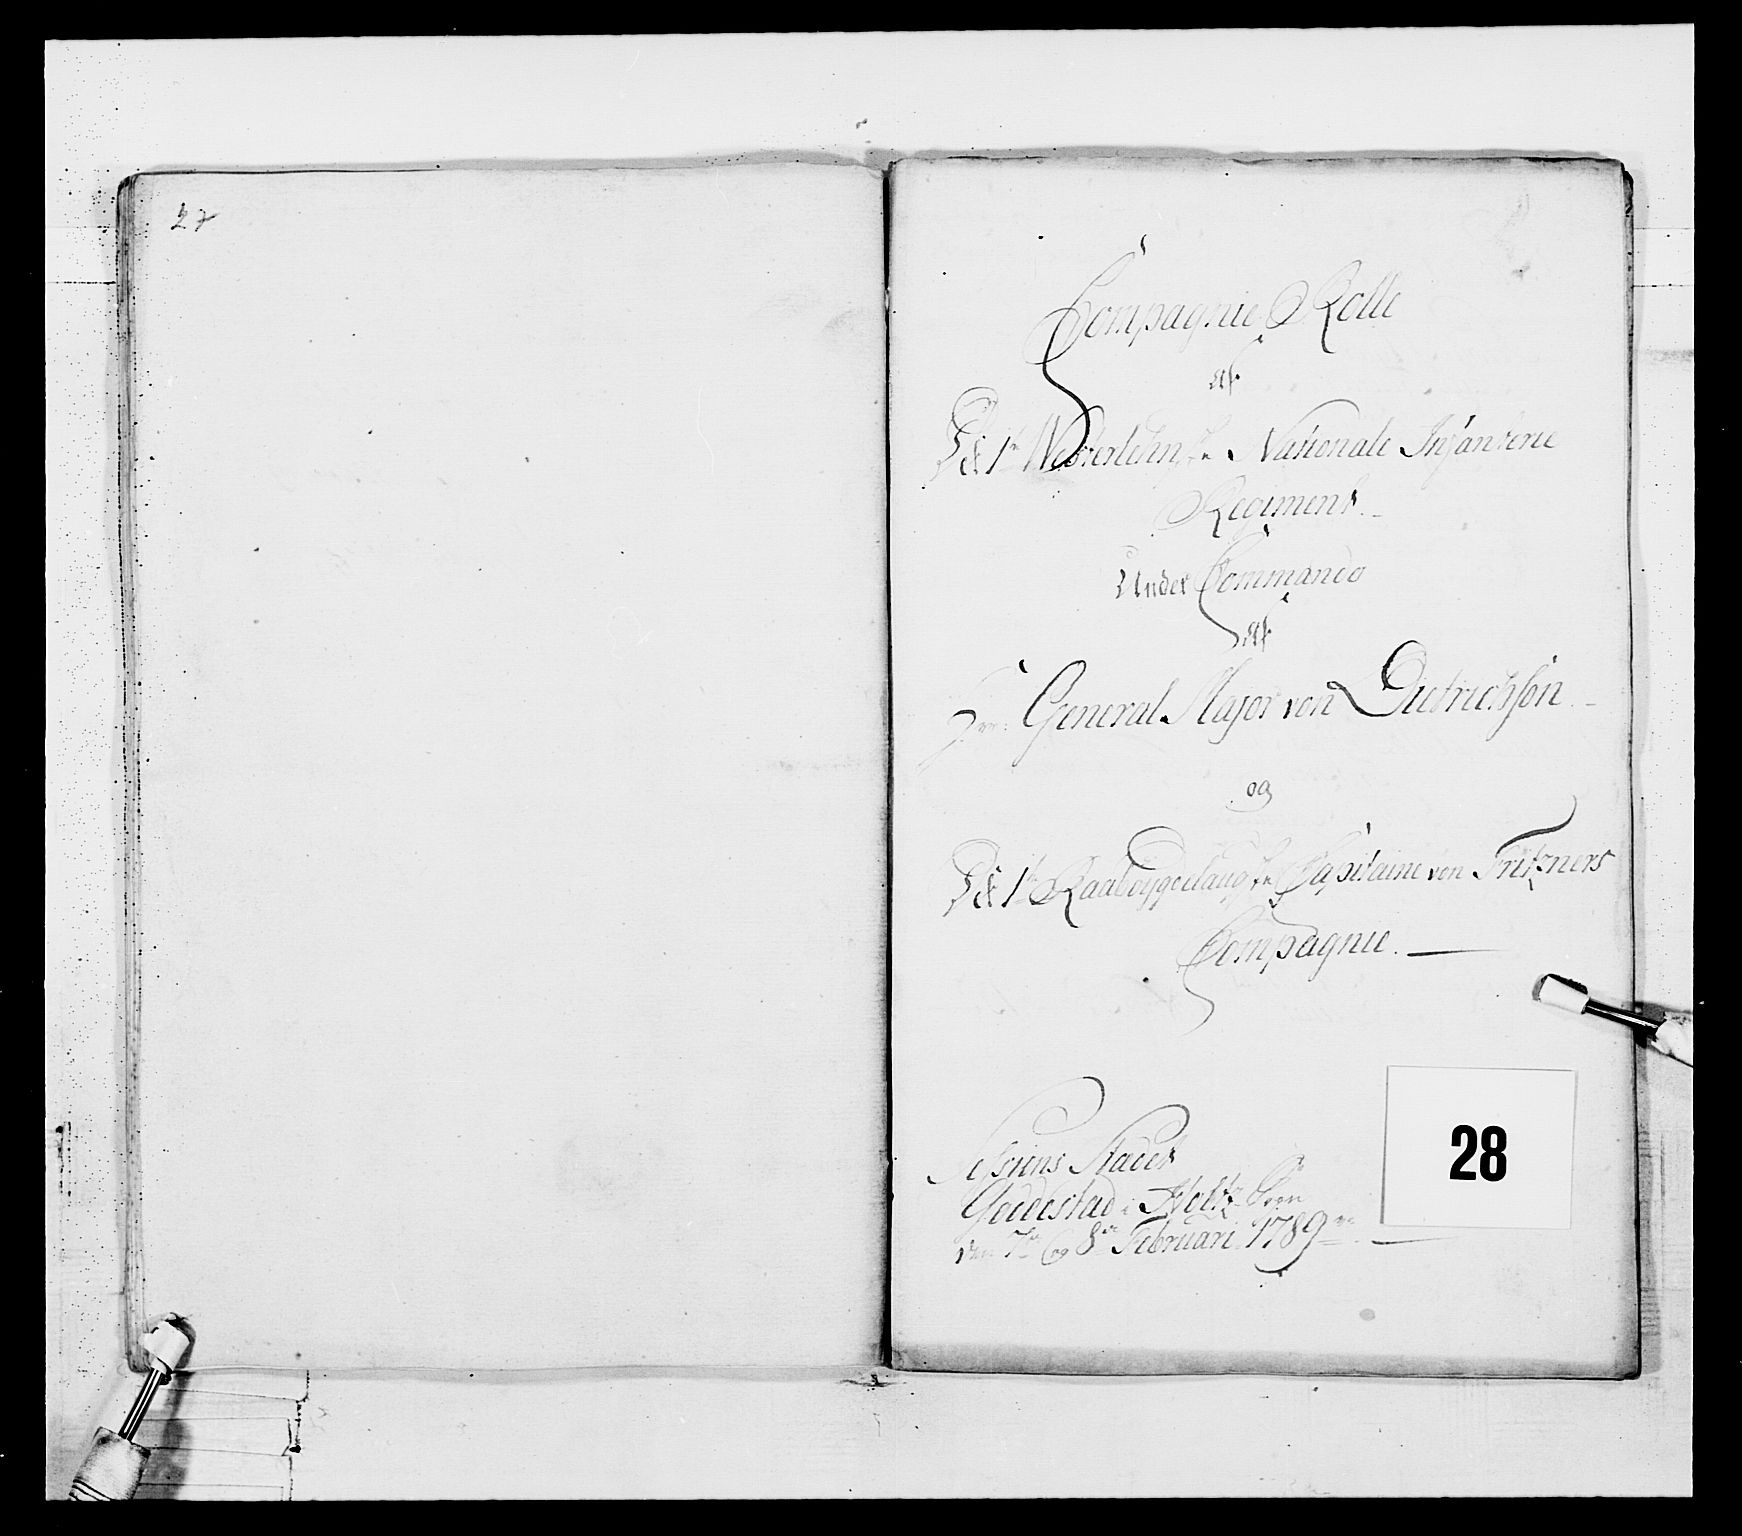 27
Compagnie Rolle
af
Det 1te Westerlehnske Nationale Infanterie
Regiment.
Under Commando
af
Hrr: General Major von Dietrichson
og
Det 1te Raabøygelaugske Capitaine von Fritzners
Compagnie.
Sessions Stædet
Goddestad i Holtz Sogn
den 7de og 8de Februari 1789
28